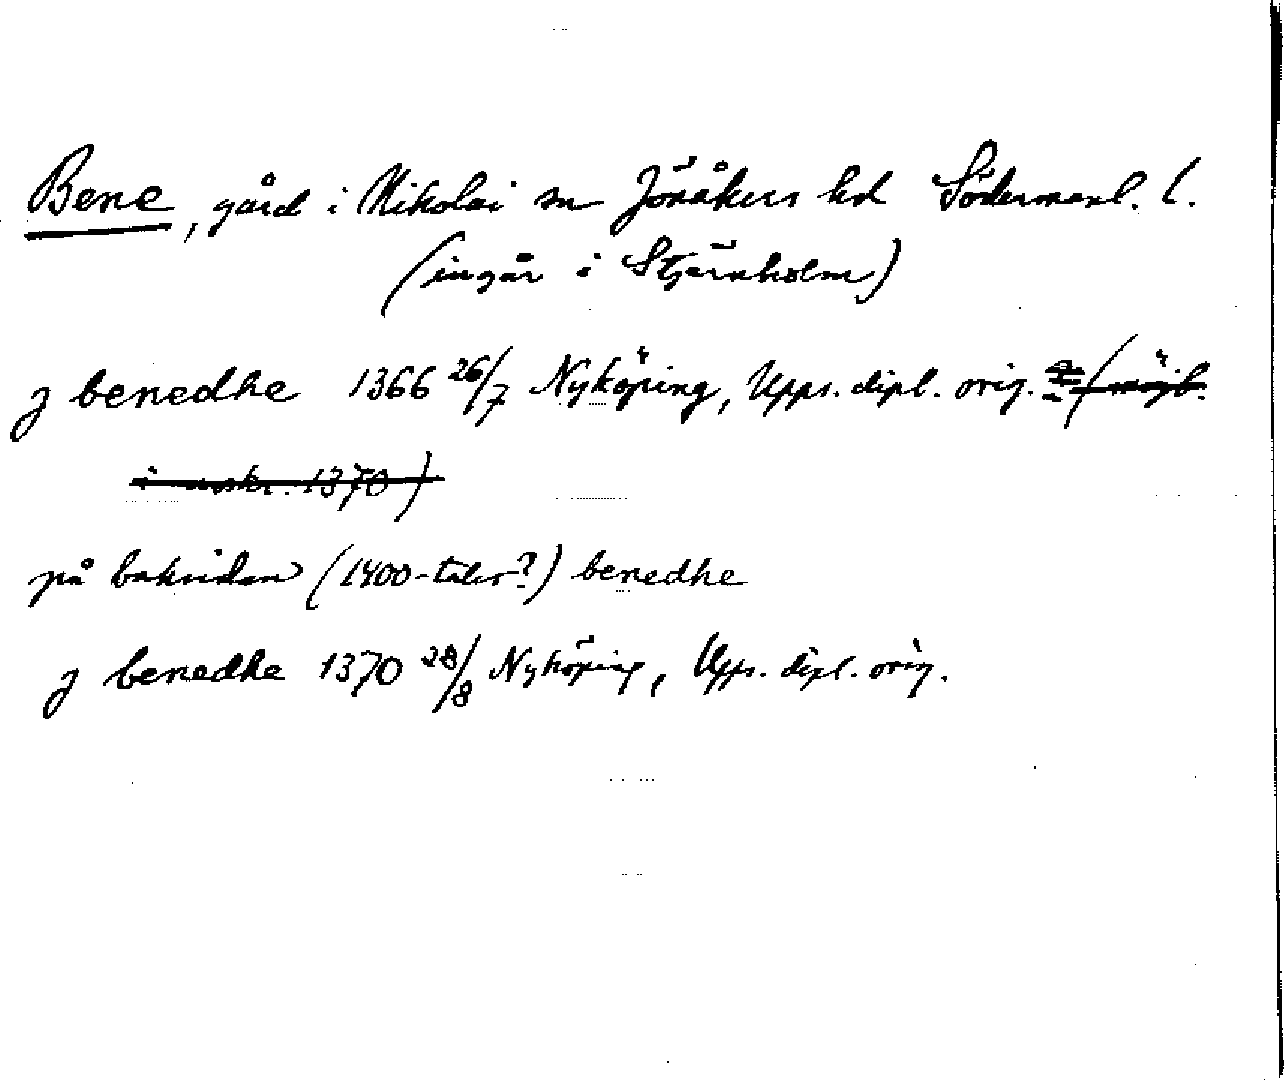 Bene, gård i Nikolai sn Jönåkers hd Södermanl. l.
(ingår i Stjärnholm)
j benedhe 1366 26/7 Nyköping, Upps. dipl. orig. (möjl.
i avskr. 1370)
på baksidan (1400-talet?) benedhe
j benedhe 1370 28/8 Nyköping, Upps. dipl. orig.